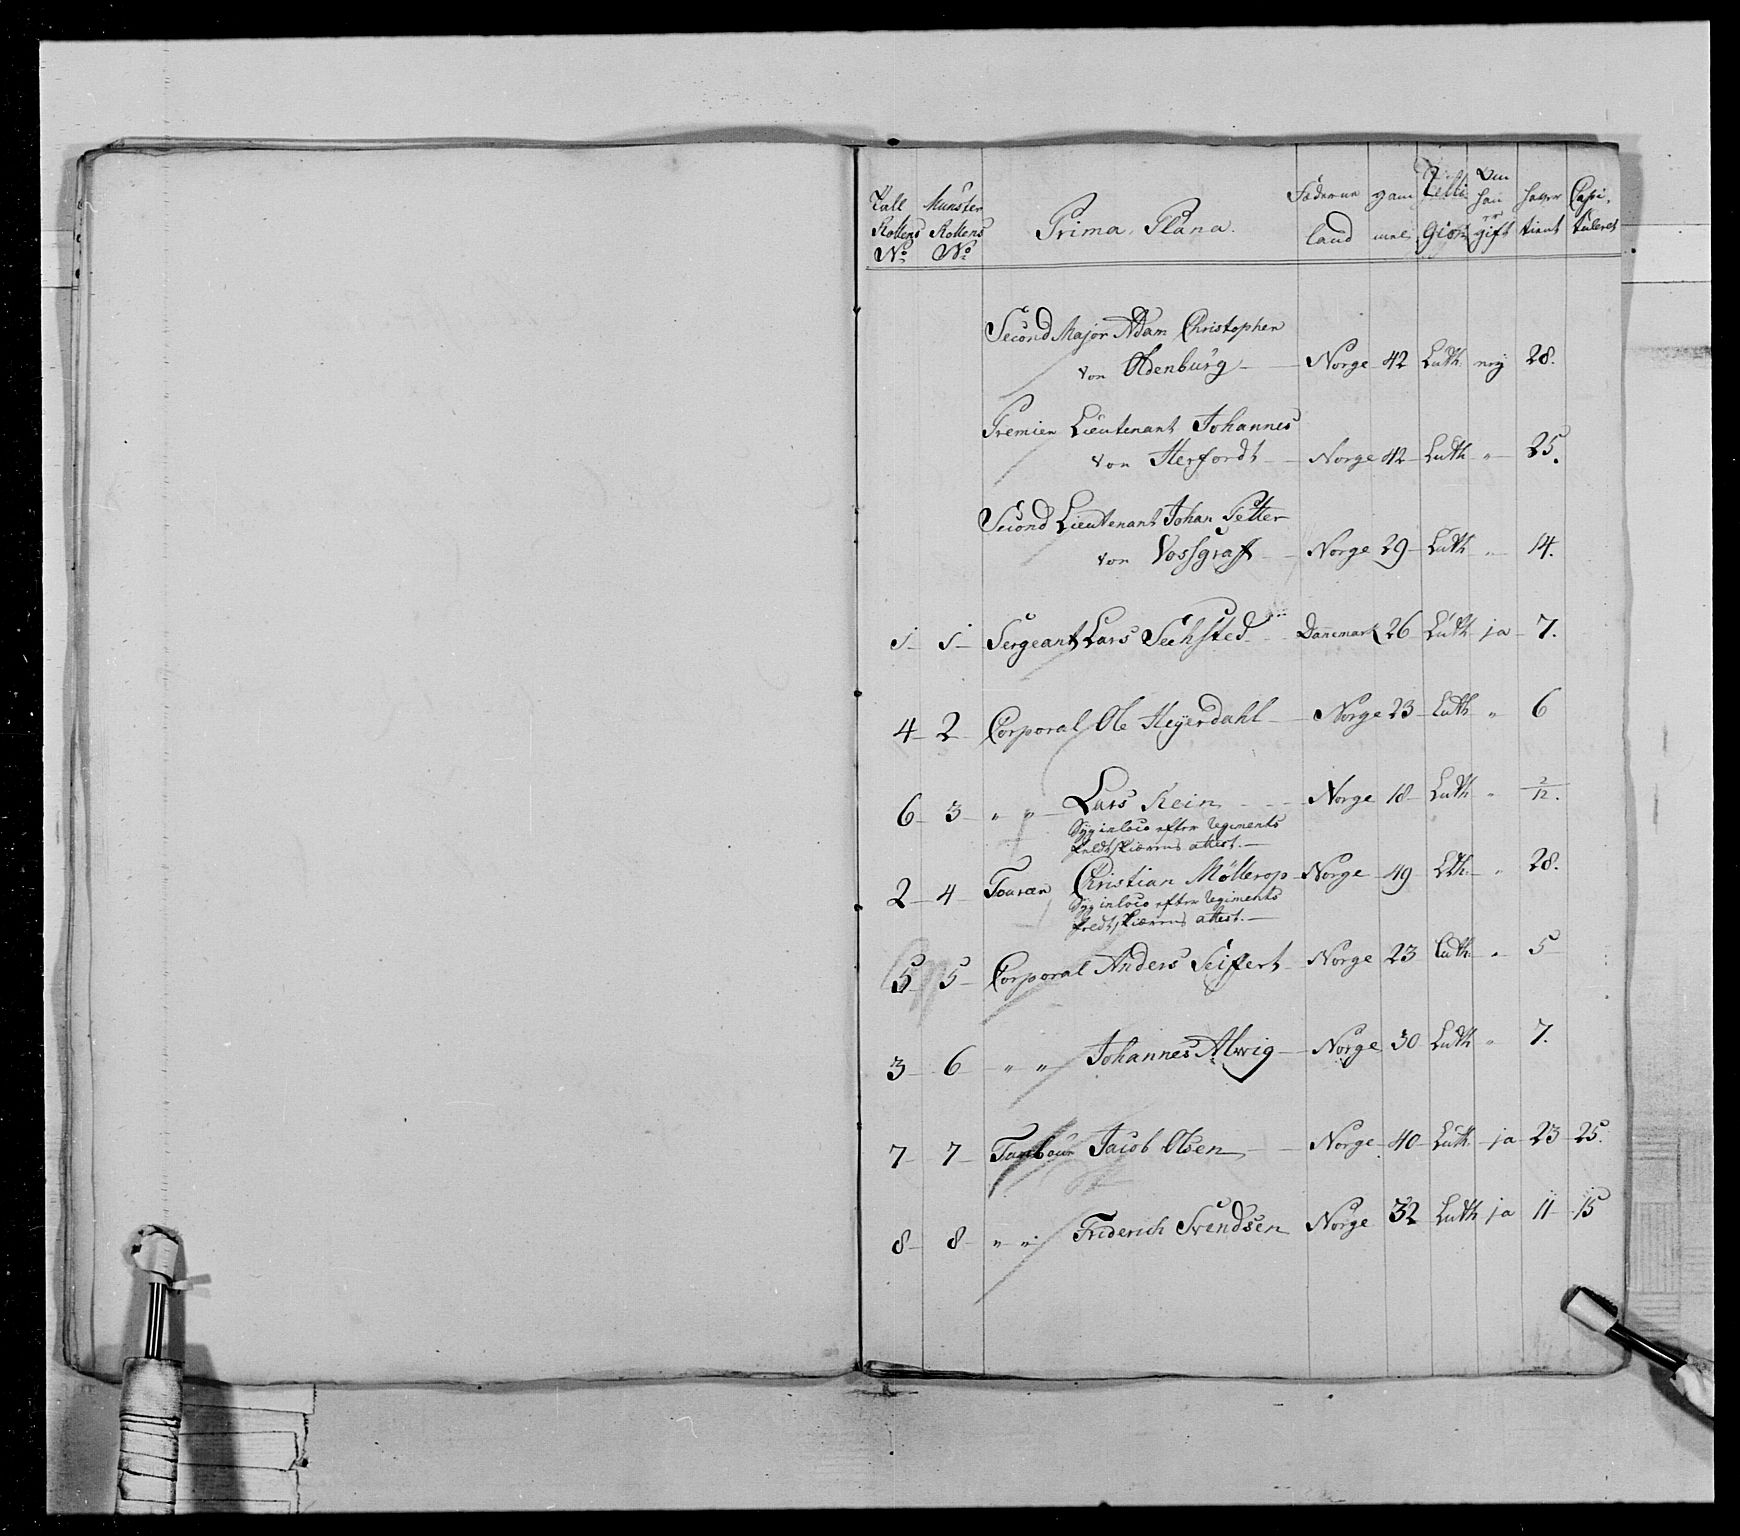 Rall Rollens No | Munster Rollens No | Prima Plana. | Føderne land | gammel | Religion | Om han er gift | hafver tient | Capituleret
Second Major Adam Christopher
von Oldenburg — Norge 42 Luth. nej 28.
Premier Lieutenant Johannes
von Herfordt — Norge 42 Luth „ 25.
Second Lieutenant Johan Petter
von Vossgraff — Norge 29 Luth „ 14.
1 1 Sergeant Lars Sechsted Danemark 26 Luth ja 7.
4 2 Corporal Ole Heyerdahl Norge 23 Luth „ 6
6 3 „ „ Lars Rein Norge 18 Luth „ 2/12.
Syg in loco efter Regiments
feldtskiærens attest.
2 4 Fourier Christian Møllerop Norge 49 Lth. „ 28.
Syg in loco efter Regiments
feldtskiærens attest.
5 5 Corporal Anders Seifert Norge 23 Luth. „ 5
3 6 „ „ Johannes Alwig Norge 30 Luth „ 7.
7 7 Tambour Jacob Olsen Norge 40 Luth. ja 23 25.
8 8 „ „ Friderich Svendsen Norge 32 Luth ja 11 15